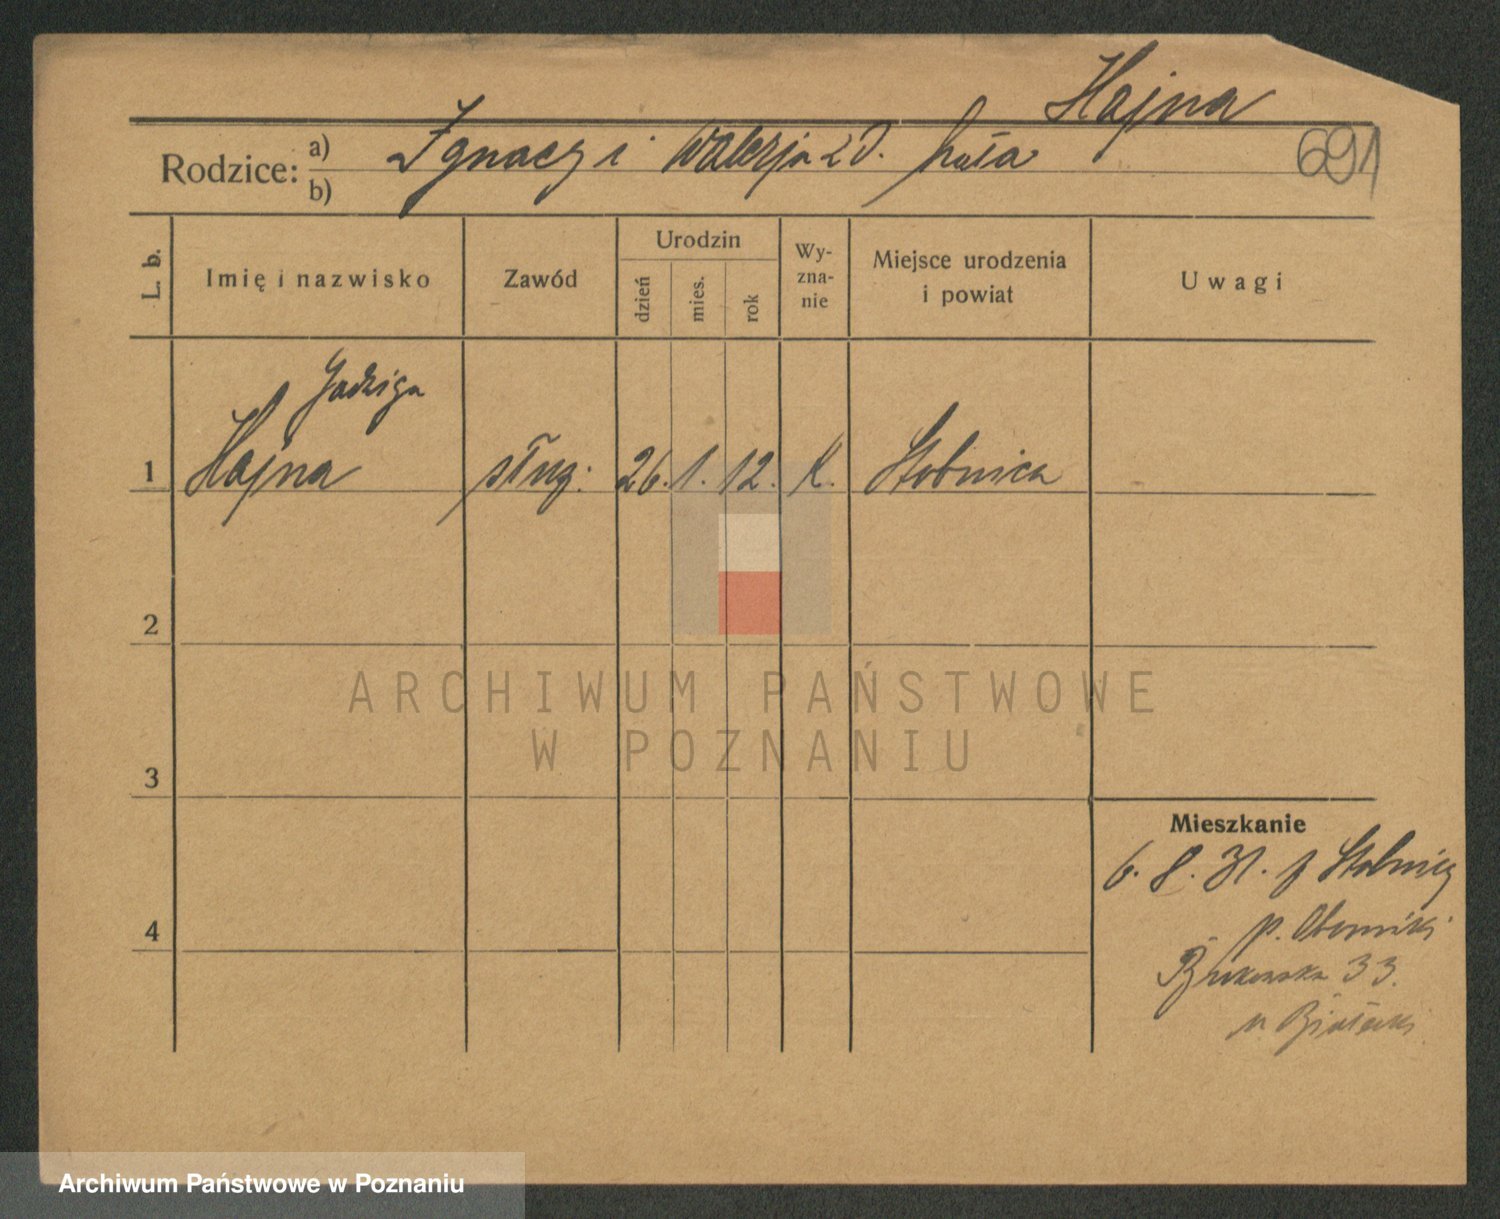 Hajna
Rodzice: a) Ignacy i Walerja z d. Huła
b)
691
L. b.
Imię i nazwisko
Zawód
Urodzin
dzień
mies.
rok
Wy-
zna-
nie
Miejsce urodzenia
i powiat
Uwagi
Jadziga
1 Hajna służ: 26. 1. 12. K. Stobnica
2
3
4
Mieszkanie
6. 8. 31. z Stobnicy
p. Oborniki
33.
u Białecki
ARCHIWUM PAŃSTWOWE
W POZNANIU
Archiwum Państwowe w Poznaniu